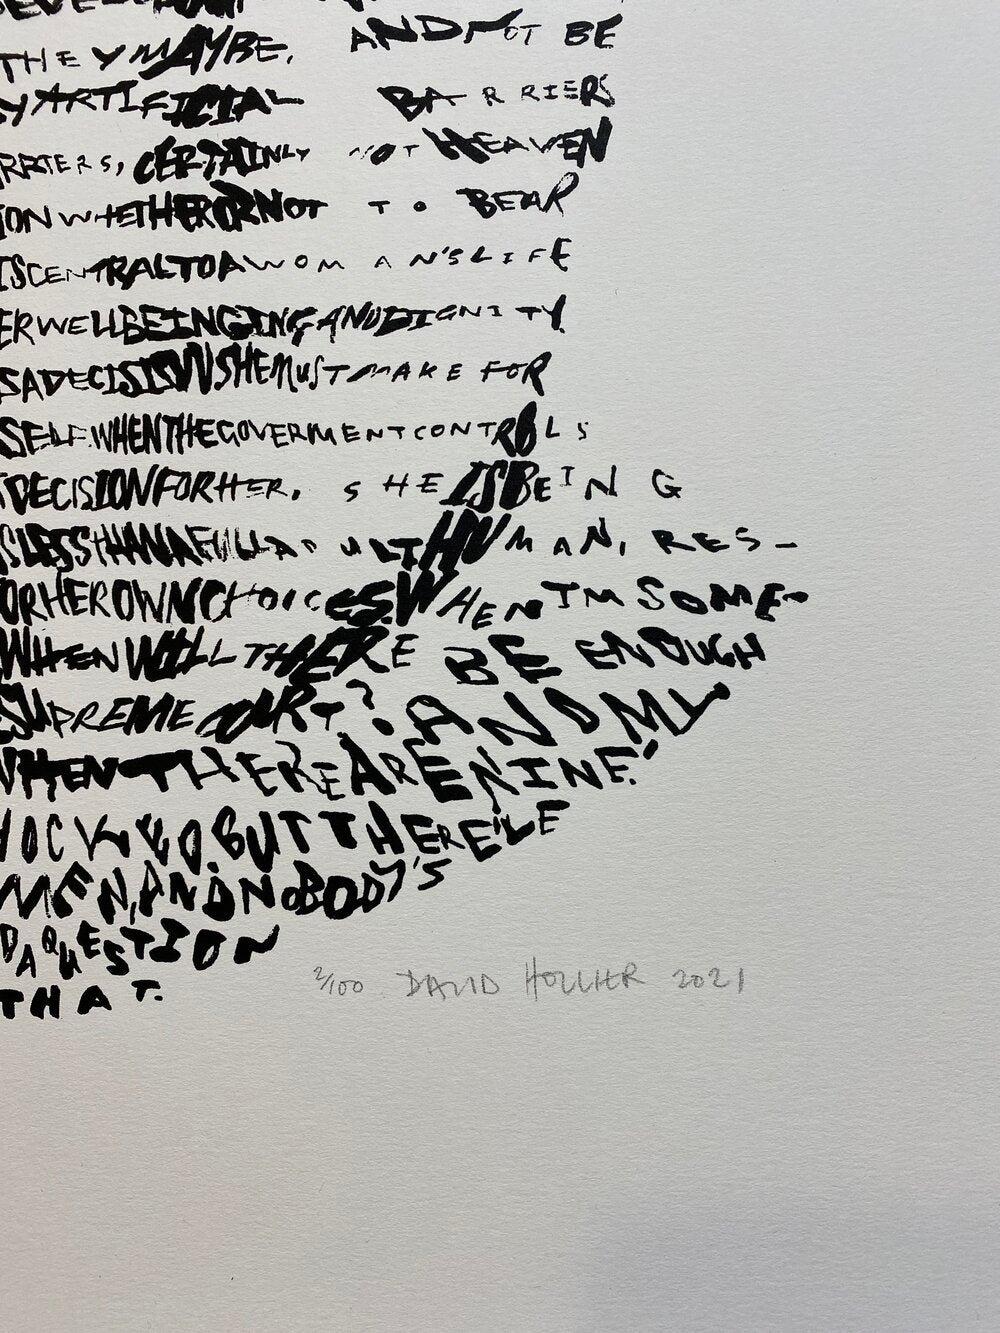 THEY MAYBE, AND NOT BE
Y ARTIFICIAL BARRIERS
RRIERS, CERTAINLY NOT HEAVEN
ION WHETHER OR NOT TO BEAR
IS CENTRAL TO A WOMAN'S LIFE
ER WELL BEING ING AND DIGNITY
S A DECISION SHE MUST MAKE FOR
SELF. WHEN THE GOVERNMENT CONTROLS
DECISION FOR HER, SHE IS BEING
S LESS THAN A FULL ADULT HUMAN, RES-
OR HER OWN CHOICES. WHEN I'M SOME-
WHEN WILL THERE BE ENOUGH
SUPREME COURT? AND MY
WHEN THERE ARE NINE.'
HOCKED. BUT THERE'VE
MEN, AND NOBODY'S
D A QUESTION
THAT.
2/100 DAVID HOLLIER 2021